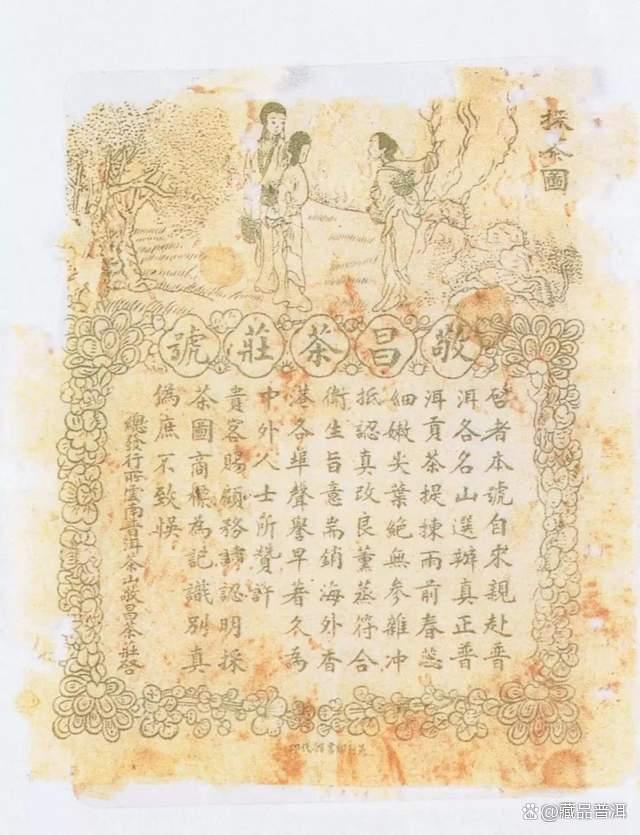 採茶圖
敬昌茶莊號
啓者本號自來親赴普
洱各名山選辦真正普
洱貢茶提揀雨前春蕊
細嫩尖葉絕無參雜冲
抵認真改良薰蒸符合
衛生旨意耑銷海外香
港各埠聲譽早著久為
中外人士所贊許
貴客賜顧務請認明採
茶圖商標為記識別真
偽庶不致悞
總發行所雲南普洱茶山敬昌茶莊啓
@藏品普洱